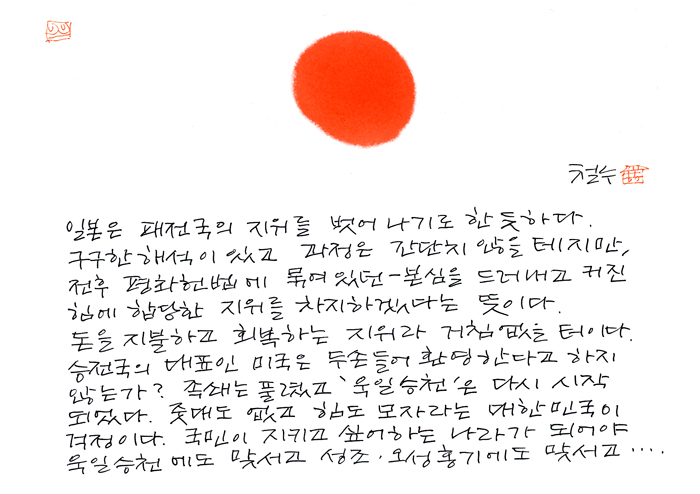 철수
일본은 패전국의 지위를 벗어나기로 한 듯하다.
구구한 해석이 있고 과정은 간단치 않을 테지만,
전후 평화헌법에 묶여 있던-본심을 드러내고 커진
힘에 합당한 지위를 차지하겠다는 뜻이다.
돈을 지불하고 회복하는 지위라 거침없을 터이다.
승전국의 대표인 미국은 두손들어 환영한다고 하지
않는가? 족쇄는 풀렸고 '욱일승천'은 다시 시작
되었다. 줏대도 없고 힘도 모자라는 대한민국이
걱정이다. 국민이 지키고 싶어하는 나라가 되어야
욱일승천에도 맞서고 성조·오성홍기에도 맞서고....